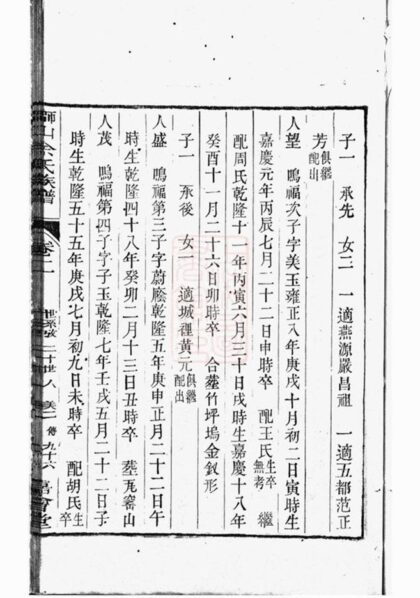 子一 承先 女三 一適燕源嚴昌祖 一適五都范正
芳俱繼配出
人望 鳴福次子字美玉雍正八年庚戌十月初二日寅時生
嘉慶元年丙辰七月二十二日申時卒 配王氏生卒無考 繼
配周氏乾隆十一年丙寅六月三十日戌時生嘉慶十八年
癸酉十一月二十六日卯時卒 合葬竹坪塢金釵形
子一 承後 女一 適城裡黃元俱繼配出
人盛 鳴福第三子字蔚 乾隆五年庚申正月二十二日午
時生乾隆四十八年癸卯二月十三日丑時卒 葬瓦窰山
人茂 鳴福第四子字子玉乾隆七年壬戌五月二十二日子
時生乾隆五十五年庚戌七月初九日未時卒 配胡氏生卒
余氏族譜 卷二 世系 二十世 人 美二 九十六